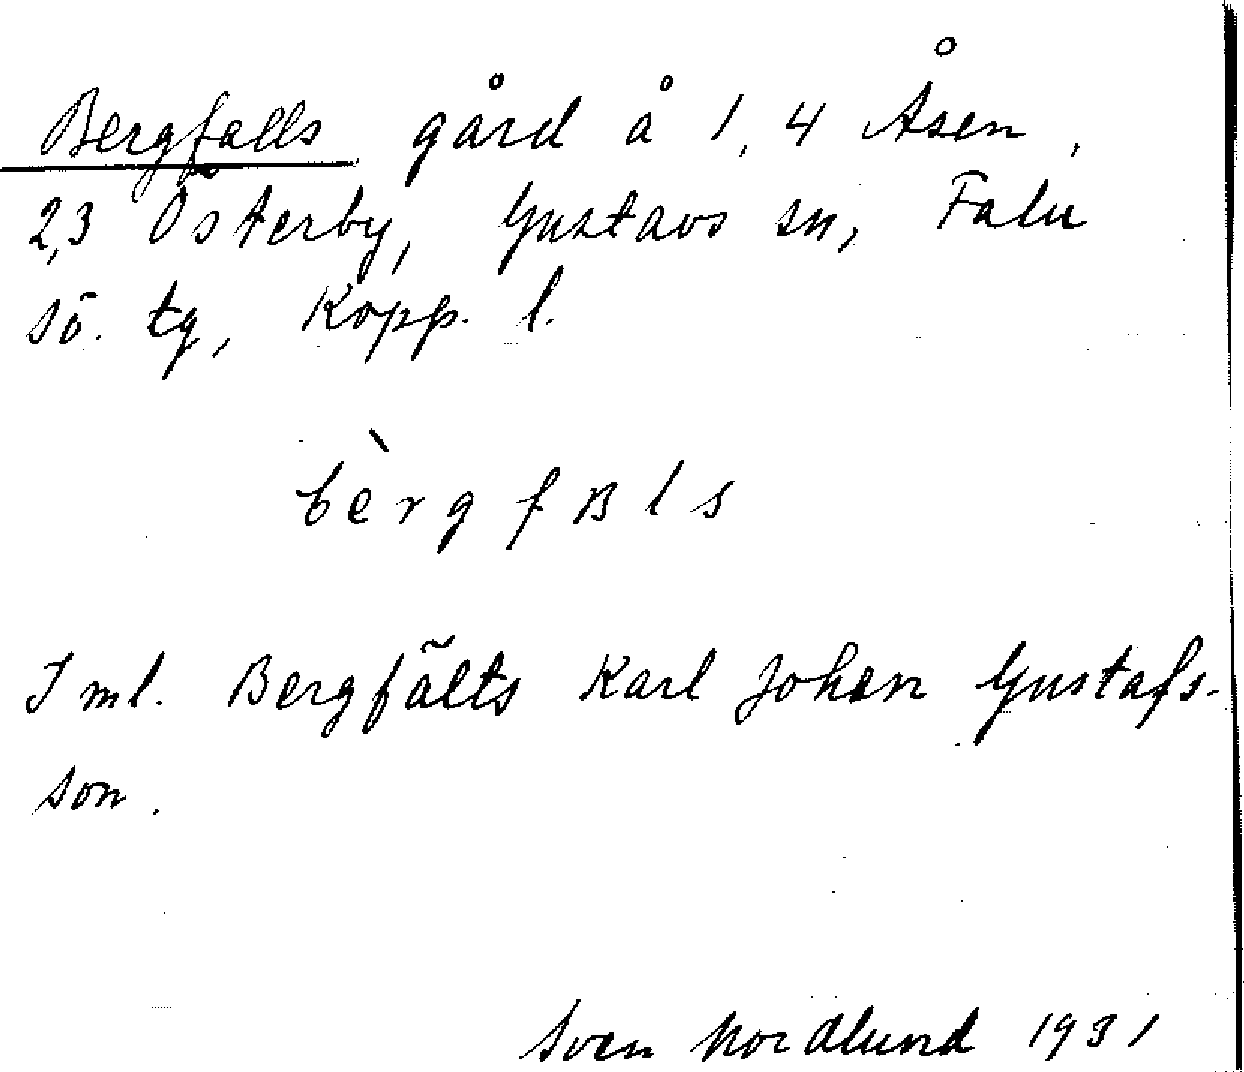 Bergfalls gård å 1,4 Åsen,
2,3 Österby, Gustavs sn, Falu
sö. tg, Kopp. l.
bèrgfʙls
I ml. Bergfälts Karl Johan Gustafs-
son.
Sven Nordlund 1931